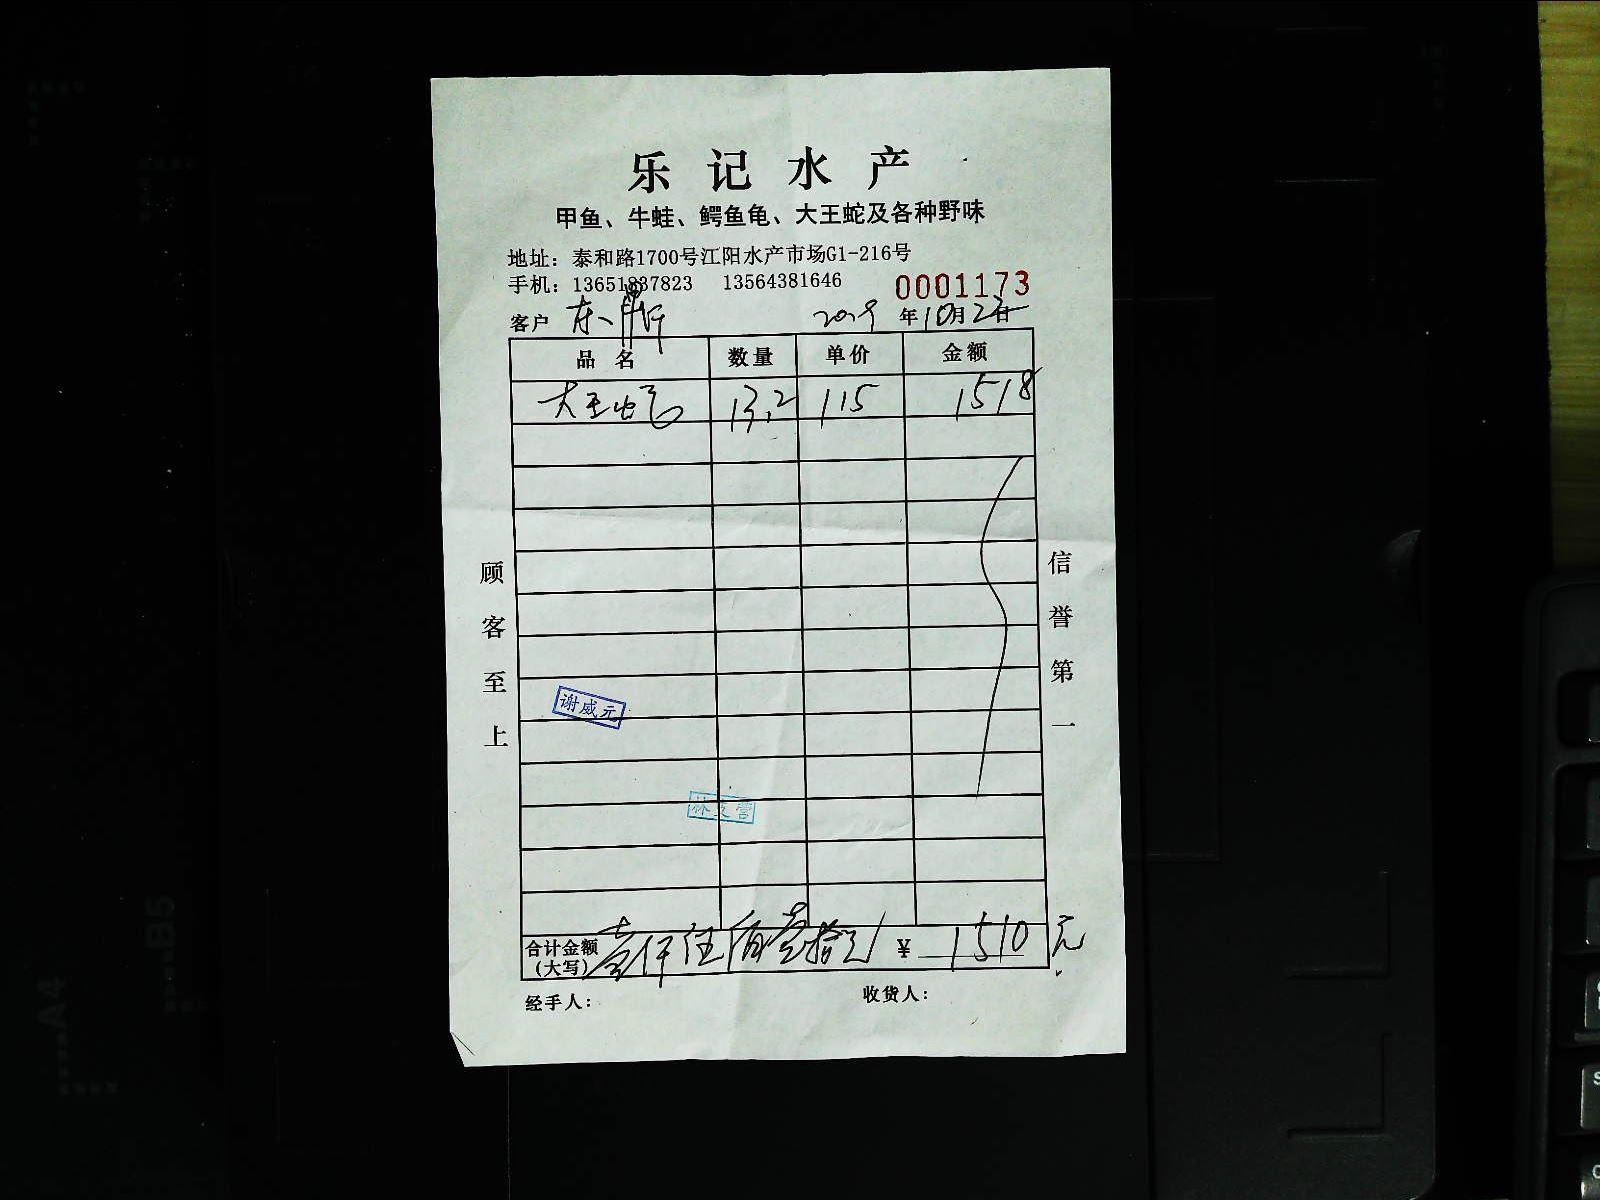 乐记水产
甲鱼、牛蛙、鳄鱼龟、大王蛇及各种野味
地址：泰和路1700号江阳水产市场G1-216号
手机：13651837823 13564381646 0001173
客户 2019年10月23日
品名 数量 单价 金额
大王蛇 13.2 115 1518
顾客至上
信誉第一
谢威元
合计金额（大写） 壹仟伍佰壹拾元 ¥1510元
经手人： 收货人：